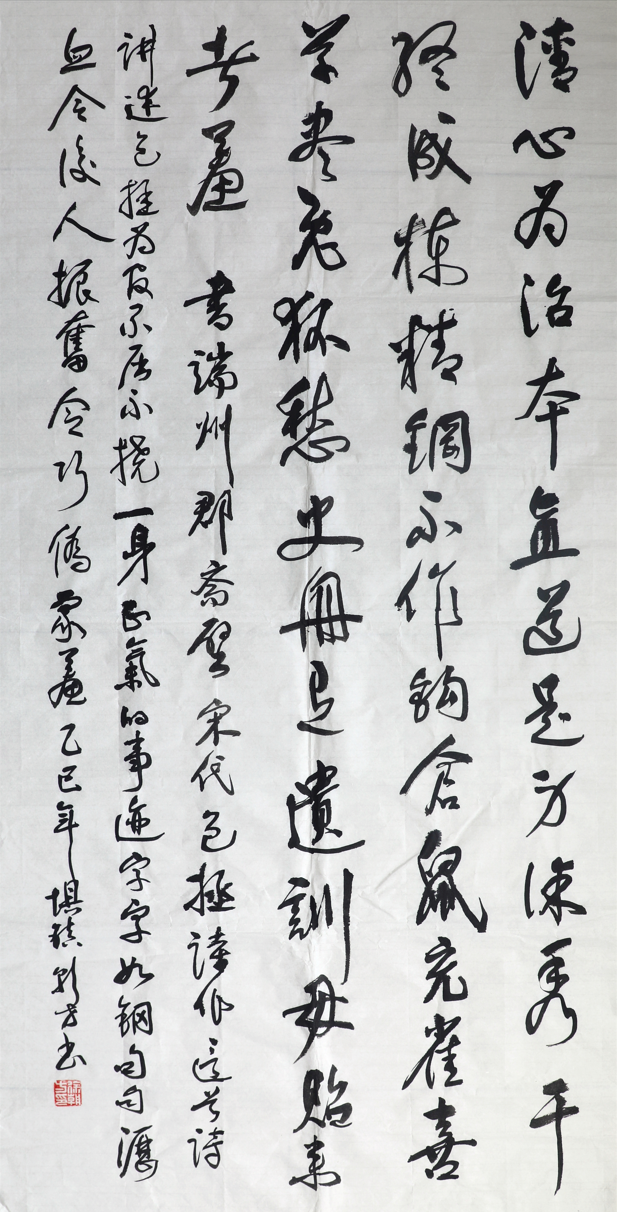 清心为治本直道是方谋秀干
终成栋精钢不作钩仓鼠充雀喜
草尽兔狐愁史册有遗训毋贻来
者羞 书端州郡斋壁宋代包拯诗作这首诗
讲述包拯为官不屈不挠一身正气的事迹字字如钢句句沥
血令后人振奋令巧伪蒙羞乙巳年